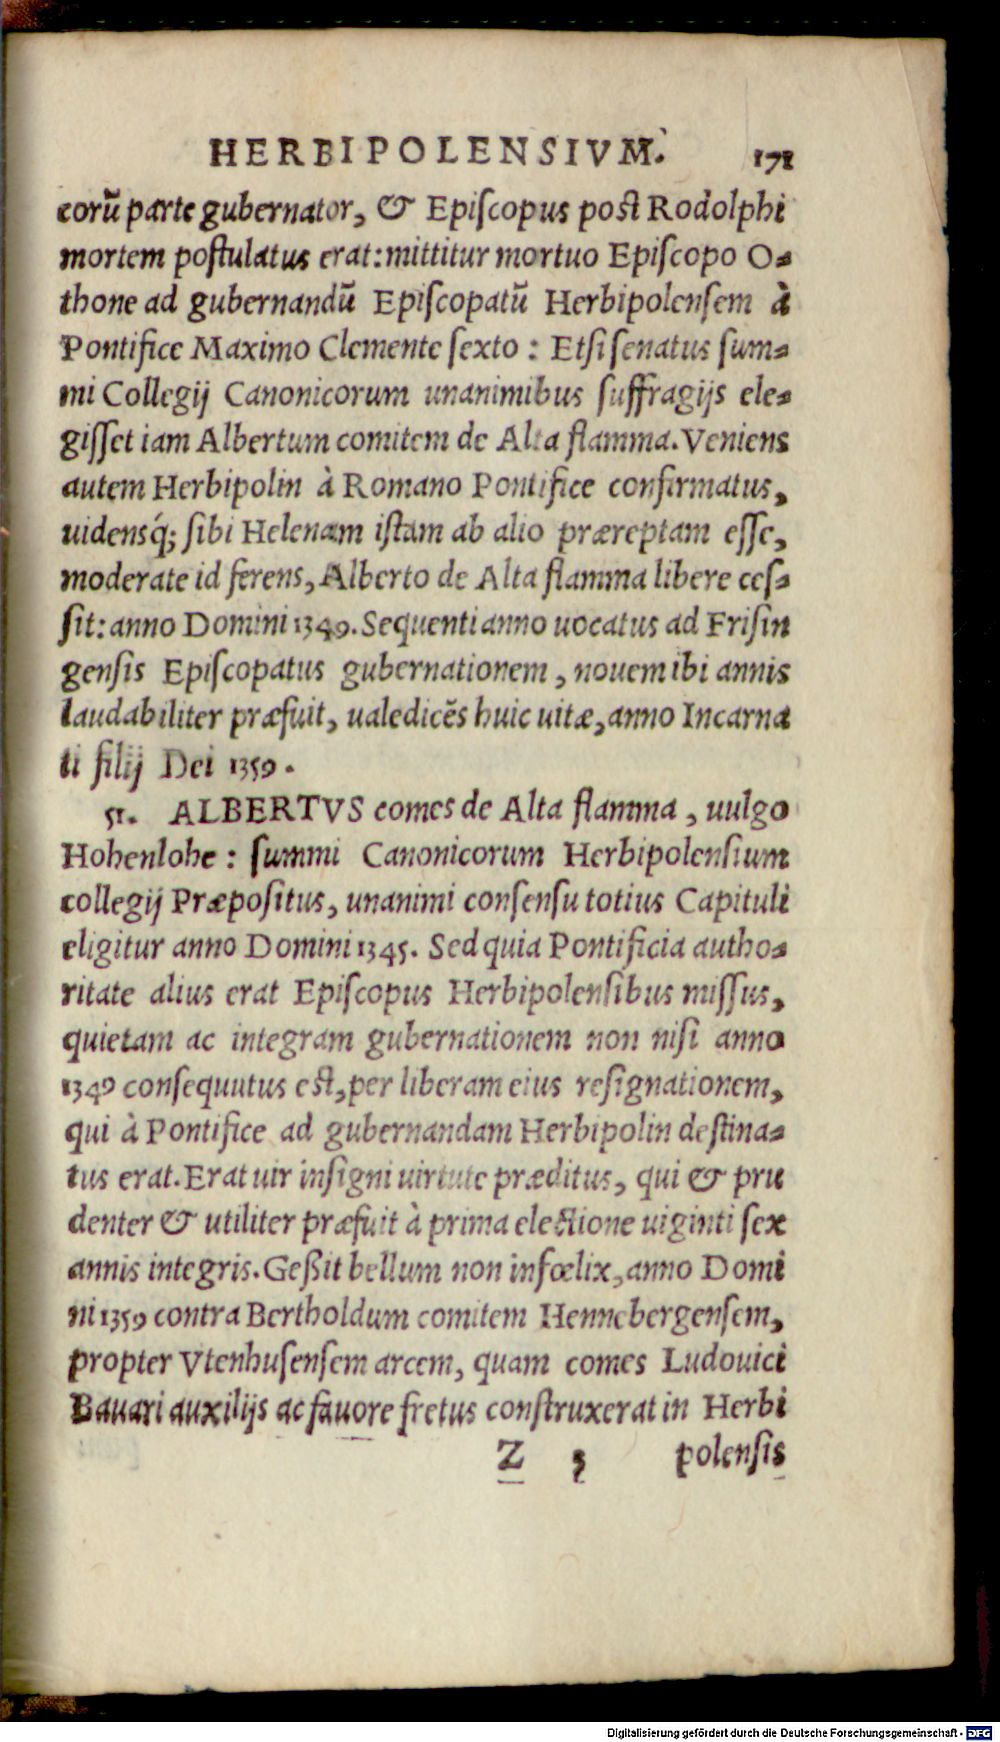 HERBIPOLENSIVM. 171
eorū parte gubernator, & Episcopus post Rodolphi
mortem postulatus erat: mittitur mortuo Episcopo O-
thone ad gubernandū Episcopatū Herbipolensem à
Pontifice Maximo Clemente sexto : Etsi senatus sum-
mi Collegij Canonicorum unanimibus suffragijs ele-
gisset iam Albertum comitem de Alta flamma. Veniens
autem Herbipolin à Romano Pontifice confirmatus,
uidensq́; sibi Helenam istam ab alio præreptam esse,
moderate id ferens, Alberto de Alta flamma libere ces-
sit: anno Domini 1349. Sequenti anno uocatus ad Frisin
gensis Episcopatus gubernationem, nouem ibi annis
laudabiliter præfuit, ualedicẽs huic uitæ, anno Incarna
ti filij Dei 1359.
51. ALBERTVS comes de Alta flamma, uulgo
Hohenlohe : summi Canonicorum Herbipolensium
collegij Præpositus, unanimi consensu totius Capituli
eligitur anno Domini 1345. Sed quia Pontificia autho-
ritate alius erat Episcopus Herbipolensibus missus,
quietam ac integram gubernationem non nisi anno
1349 consequutus est, per liberam eius resignationem,
qui à Pontifice ad gubernandam Herbipolin destina-
tus erat. Erat uir insigni uirtute præditus, qui & pru
denter & utiliter præfuit à prima electione uiginti sex
annis integris. Geßit bellum non infœlix, anno Domi
ni 1359 contra Bertholdum comitem Hennebergensem,
propter Vtenhusensem arcem, quam comes Ludouici
Bauari auxilijs ac fauore fretus construxerat in Herbi
Z 3 polensis
Digitalisierung gefördert durch die Deutsche Forschungsgemeinschaft - DFG